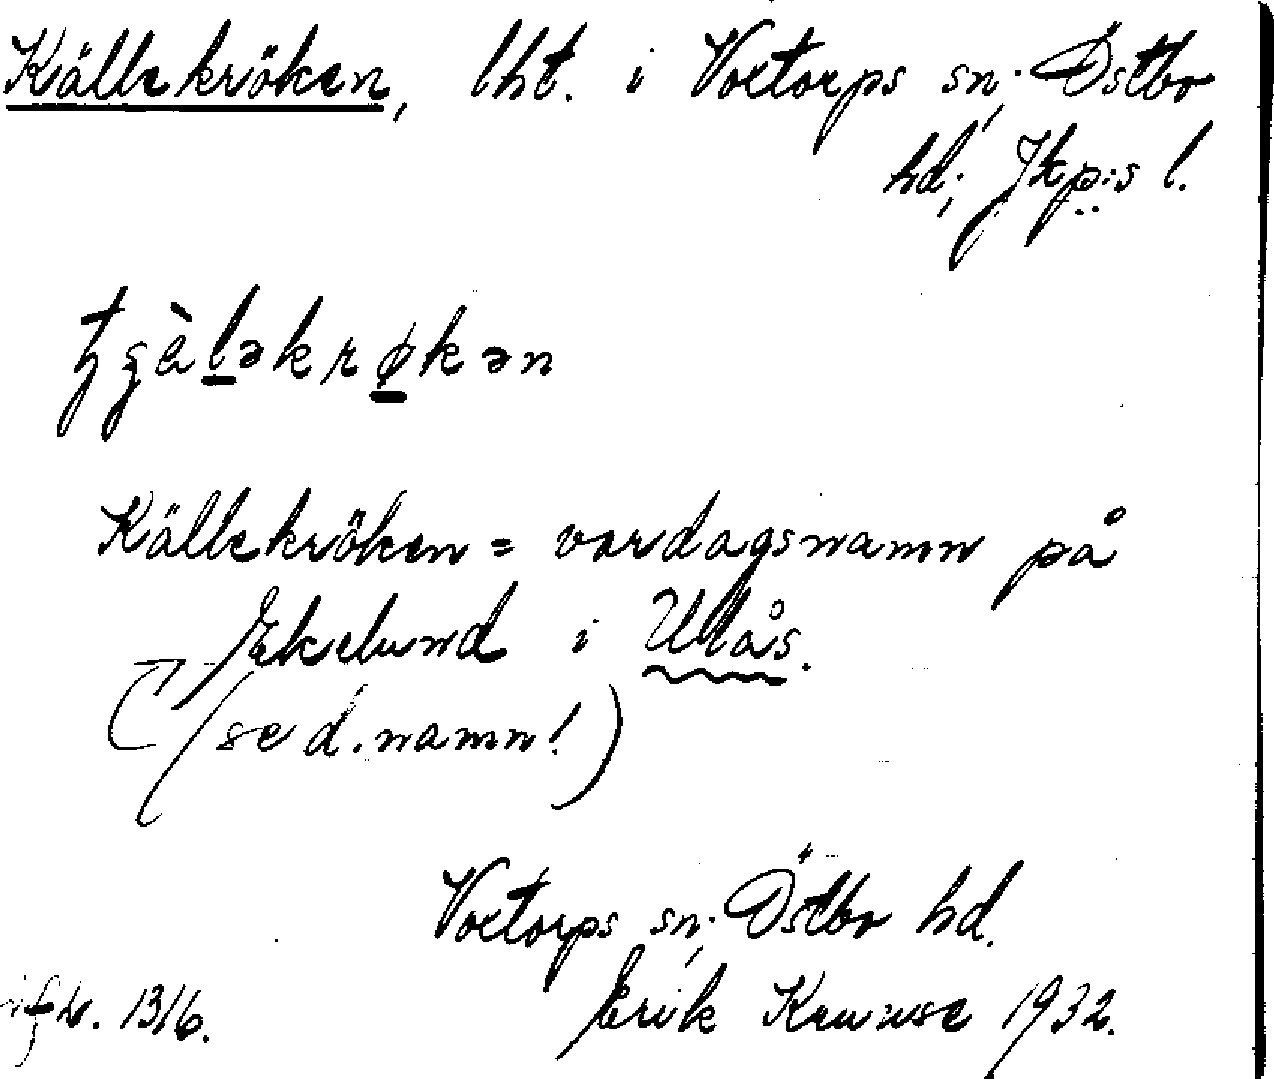 Källekröken, lht. i Voxtorps sn; Östbo
hd; Jkp:s l.
Källekröken = vardagsnamn på
Ekelund i Ulås.
(se d. namn!)
Voxtorps sn; Östbo hd.
Erik Krause 1932.
1316.